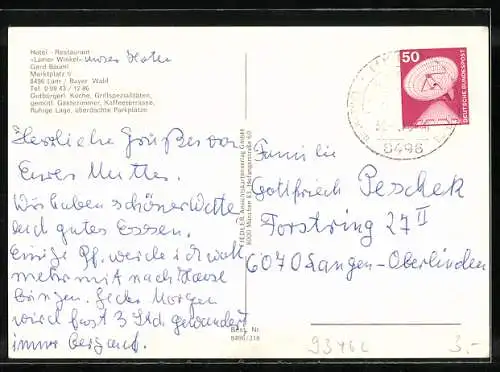 Hotel - Restaurant
»Lamer Winkel« unser Hotel
Gerd Bauml
Marktplatz 9
8496 Lam / Bayer Wald
Tel 0 99 43 / 12 86
Gutbürgerl Küche, Grillspezialitäten,
gemütl Gästezimmer, Kaffeeterrasse,
Ruhige Lage, überdachte Parkplätze
Herzliche Grüße von
Eurer Mutter.
Wir haben schönes Wetter
und gutes Essen.
Einige Pf. werde ich wohl
mehr mit nach Hause
bringen. Jeden Morgen
wird fast 3 Std. gewandert
immer bergauf.
FIEDLER Ansichtskartenverlag GmbH
8000 München 83
Best. Nr.
8496/318
50
DEUTSCHE BUNDESPOST
8496
Familie
Gottfried Peschek
Forstring 27 II
6070 Langen-Oberlinden
3.-